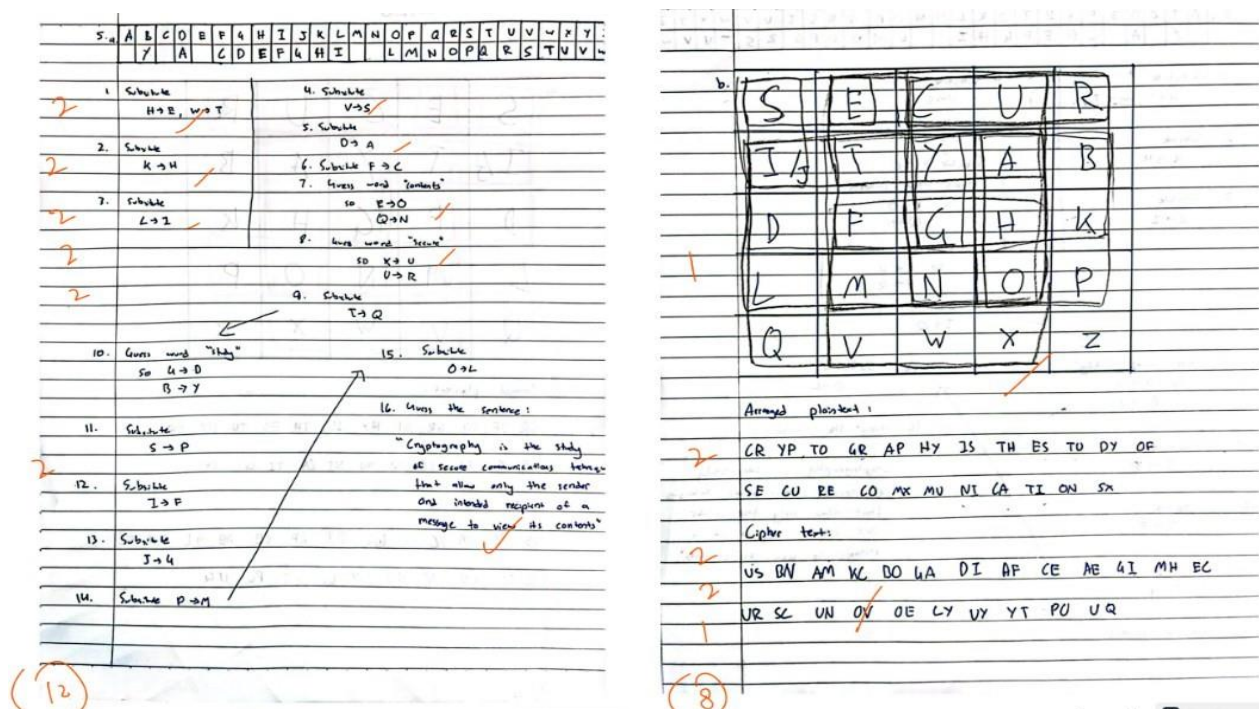 5. a. A B C D E F G H I J K L M N O P Q R S T U V W X Y Z
Y A C D E F G H I L M N O P Q R S T U V W
1. Substitute
H→E, W→T
2
2. Substitute
K→H
2
3. Substitute
L→I
2
2
2
4. Substitute
V→S
5. Substitute
D→A
6. Substitute F→C
7. Guess word "contents"
so E→O
Q→N
8. Guess word "secure"
so X→U
U→R
9. Substitute
T→Q
10. Guess word "study"
so G→D
B→Y
11. Substitute
S→P
2
12. Substitute
I→F
13. Substitute
J→G
14. Substitute P→M
15. Substitute
O→L
16. Guess the sentence:
"Cryptography is the study
of secure communications
that allow only the sender
and intended recipient of a
message to view its contents"
12
b.
S E C U R
I/J T Y A B
D F G H K
L M N O P
Q V W X Z
1
Arranged plaintext:
2
CR YP TO GR AP HY IS TH ES TU DY OF
SE CU RE CO MX MU NI CA TI ON SX
Cipher text:
2
US BN AM KC BO GA DI AF CE AE GI MH EC
2
UR SC UN OV OE LY UY YT PO UQ
1
8